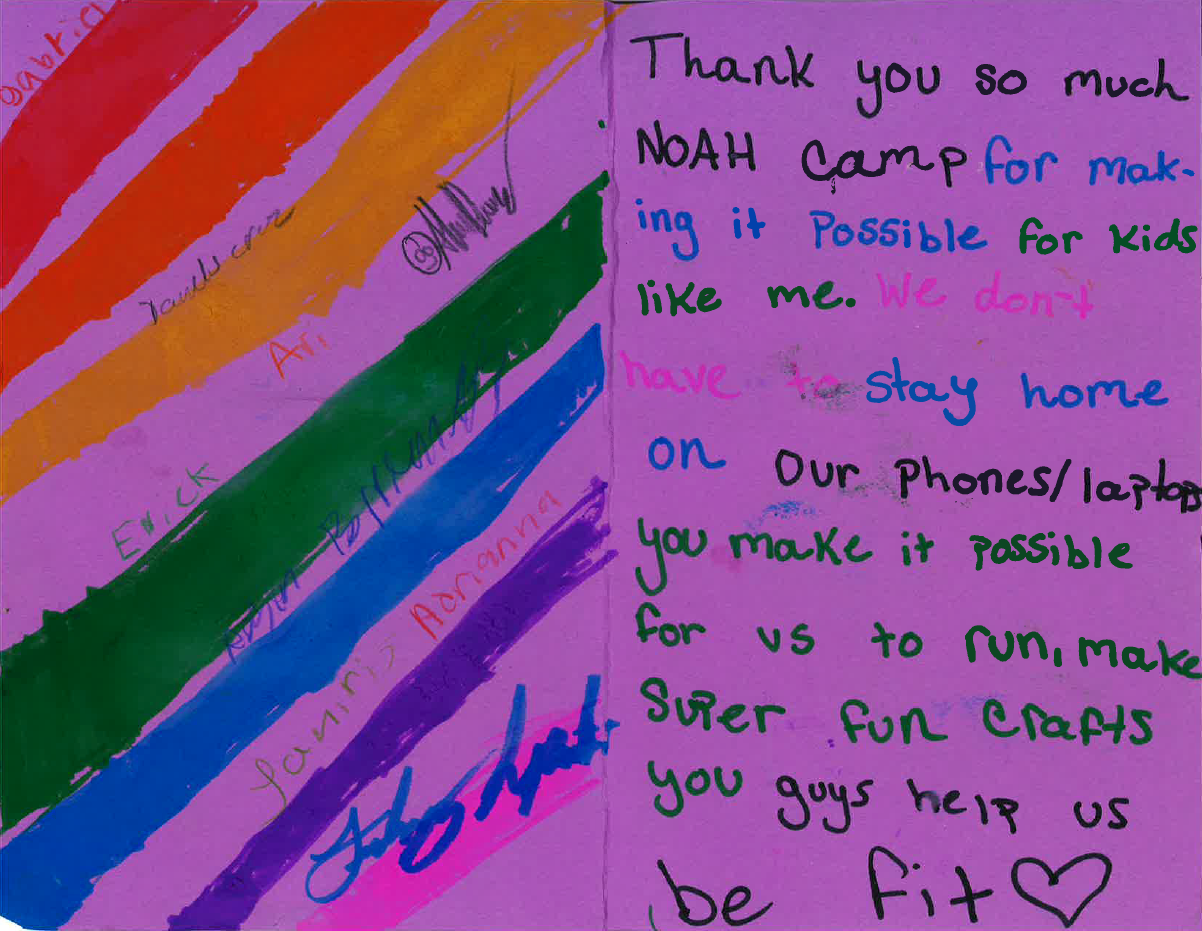 Ari
Erick
Adrianna
Yaniris
Thank you so much
NOAH Camp for mak-
ing it possible for kids
like me. We don't
have to stay home
on our phones/laptops
you make it possible
for us to run, make
super fun crafts
you guys help us
be fit